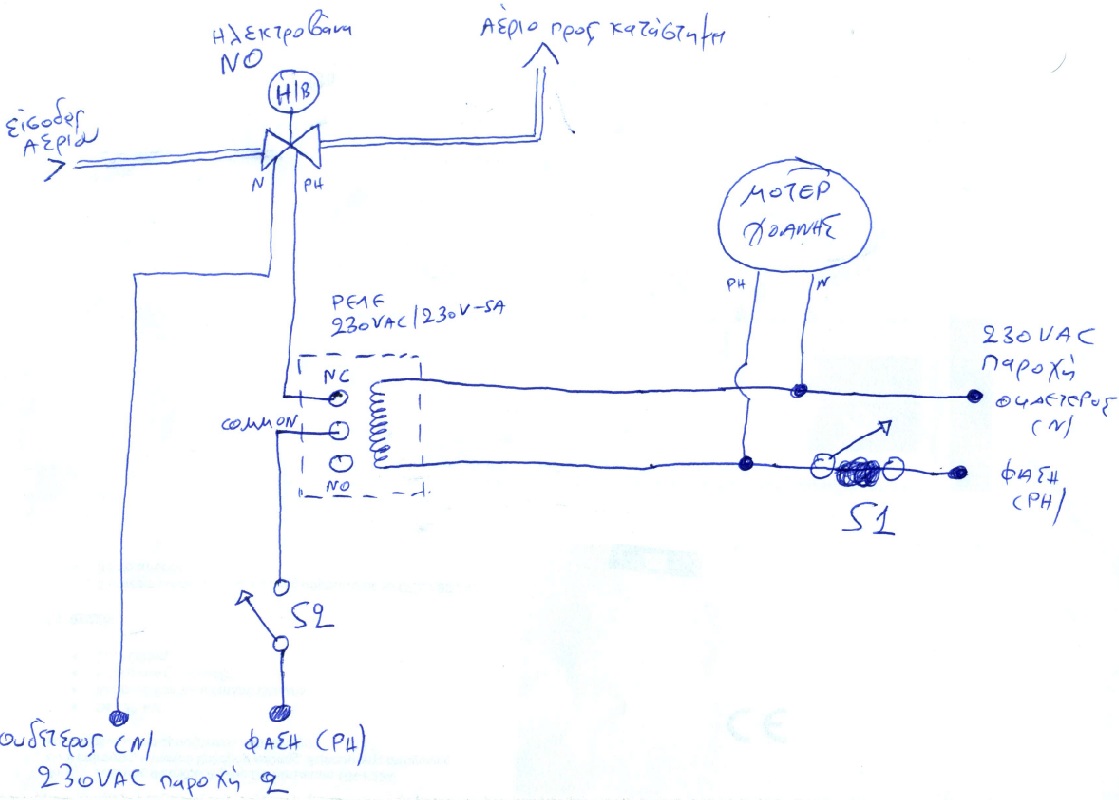 Ηλεκτροβάνα
NO
Αέριο προς κατάστημα
Η/Β
είσοδος
Αερίου
N PH
ΜΟΤΕΡ
ΧΟΑΝΗΣ
PH N
ΡΕΛΕ
230VAC/230V-5A
NC
COMMON
NO
230VAC
παροχή
ΟΥΔΕΤΕΡΟΣ
(N)
ΦΑΣΗ
(PH)
S1
S2
ουδέτερος (N)
ΦΑΣΗ (PH)
230VAC παροχή 2
CE